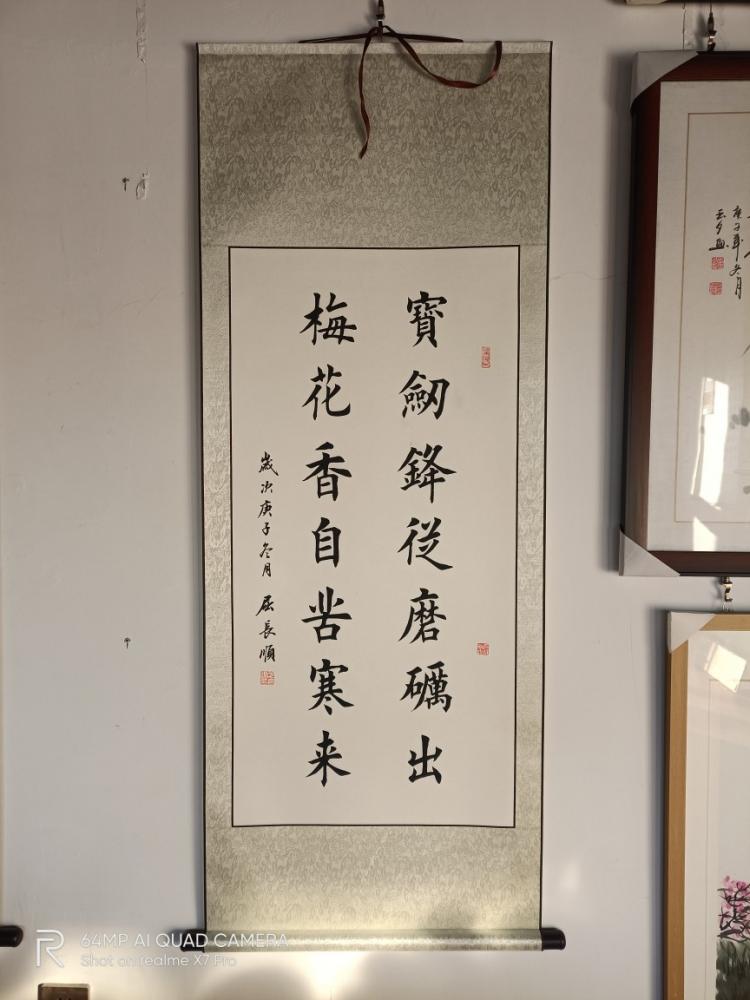 寶劒鋒從磨礪出
梅花香自苦寒来
歲次庚子冬月 屈長順
庚子年冬月
64MP AI QUAD CAMERA
Shot on realme X7 Pro